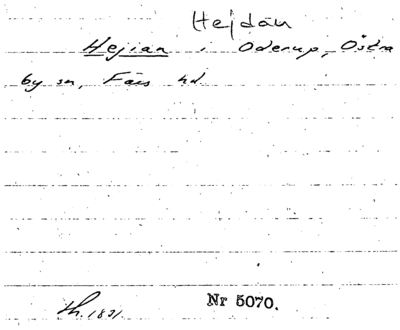 Hejdán
Hejian i Oderup, Östra
by sn, Färs hd.
th. 1831. Nr 5070.